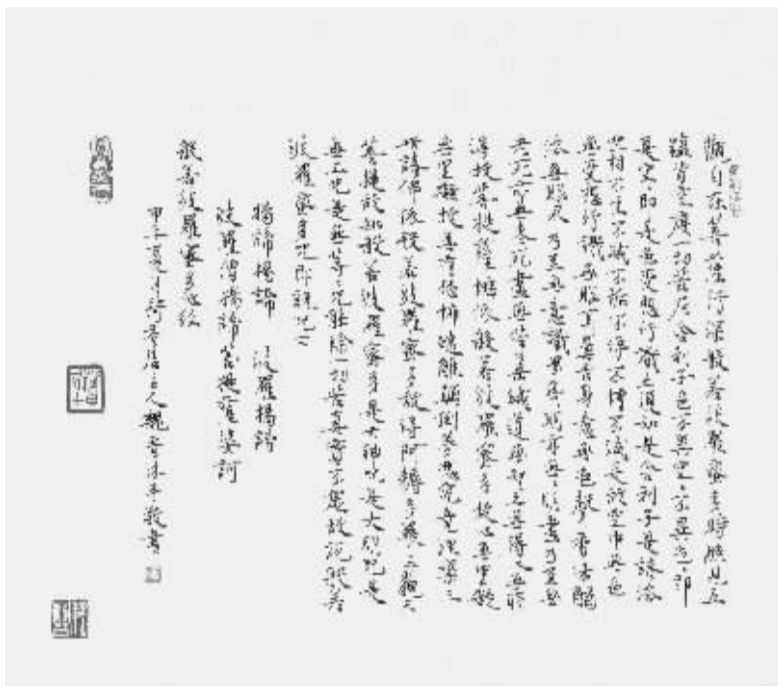 觀自在菩薩行深般若波羅蜜多時照見五
蘊皆空度一切苦厄舍利子色不異空〻不異色〻即
是空〻即是色受想行識亦復如是舍利子是諸法
空相不生不滅不垢不淨不增不減是故空中無色
無受想行識無眼耳鼻舌身意無色聲香味觸
法無眼界乃至無意識界無無明亦無無明盡乃至無
老死亦無老死盡無苦集滅道無智亦無得以無所
得故菩提薩埵依般若波羅蜜多故心無罣礙
無罣礙故無有恐怖遠離顛倒夢想究竟涅槃三
世諸佛依般若波羅蜜多故得阿耨多羅三藐三
菩提故知般若波羅蜜多是大神咒是大明咒是
無上咒是無等〻咒能除一切苦真實不虛故說般若
波羅蜜多咒即說咒曰
揭諦揭諦 波羅揭諦
波羅僧揭諦菩提薩婆訶
般若波羅蜜多心經
夏月 主人魏 沐手敬書